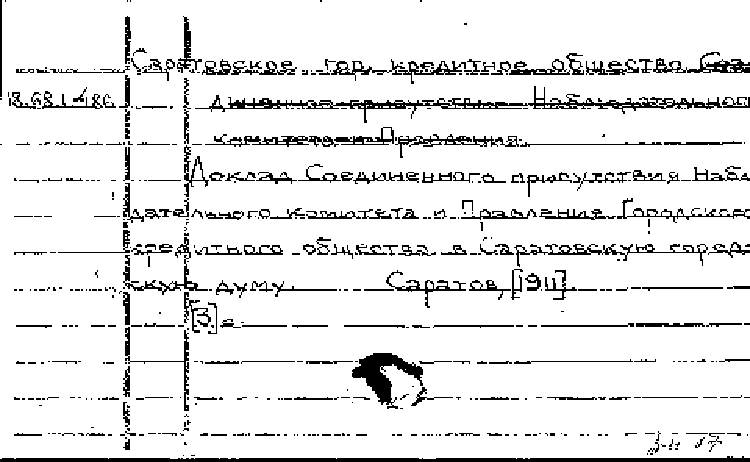 Саратовское гор. кредитное общество Сое-
18.68.1.486
диненное присутствие Наблюдательного
комитета и Правления.
Доклад Соединенного присутствия Наблю
дательного комитета и Правления Городского
кредитного общества в Саратовскую город
скую думу. Саратов, [1911].
[3] с.